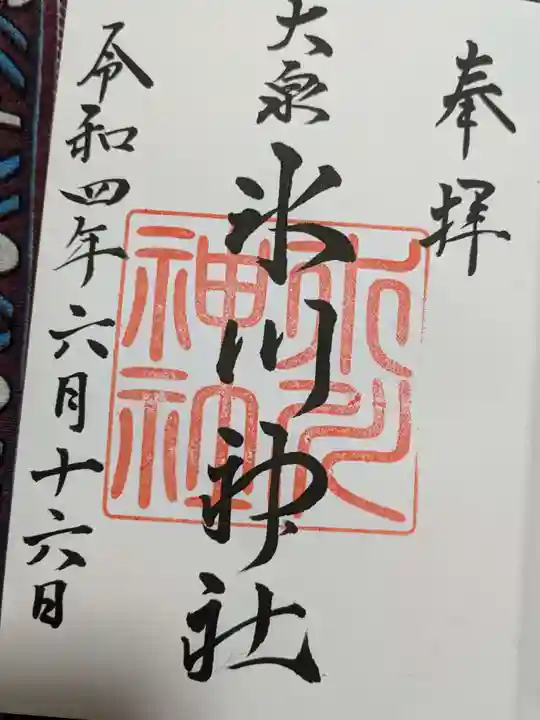 奉拝
大泉
氷川神社
氷川神社
令和四年六月十六日